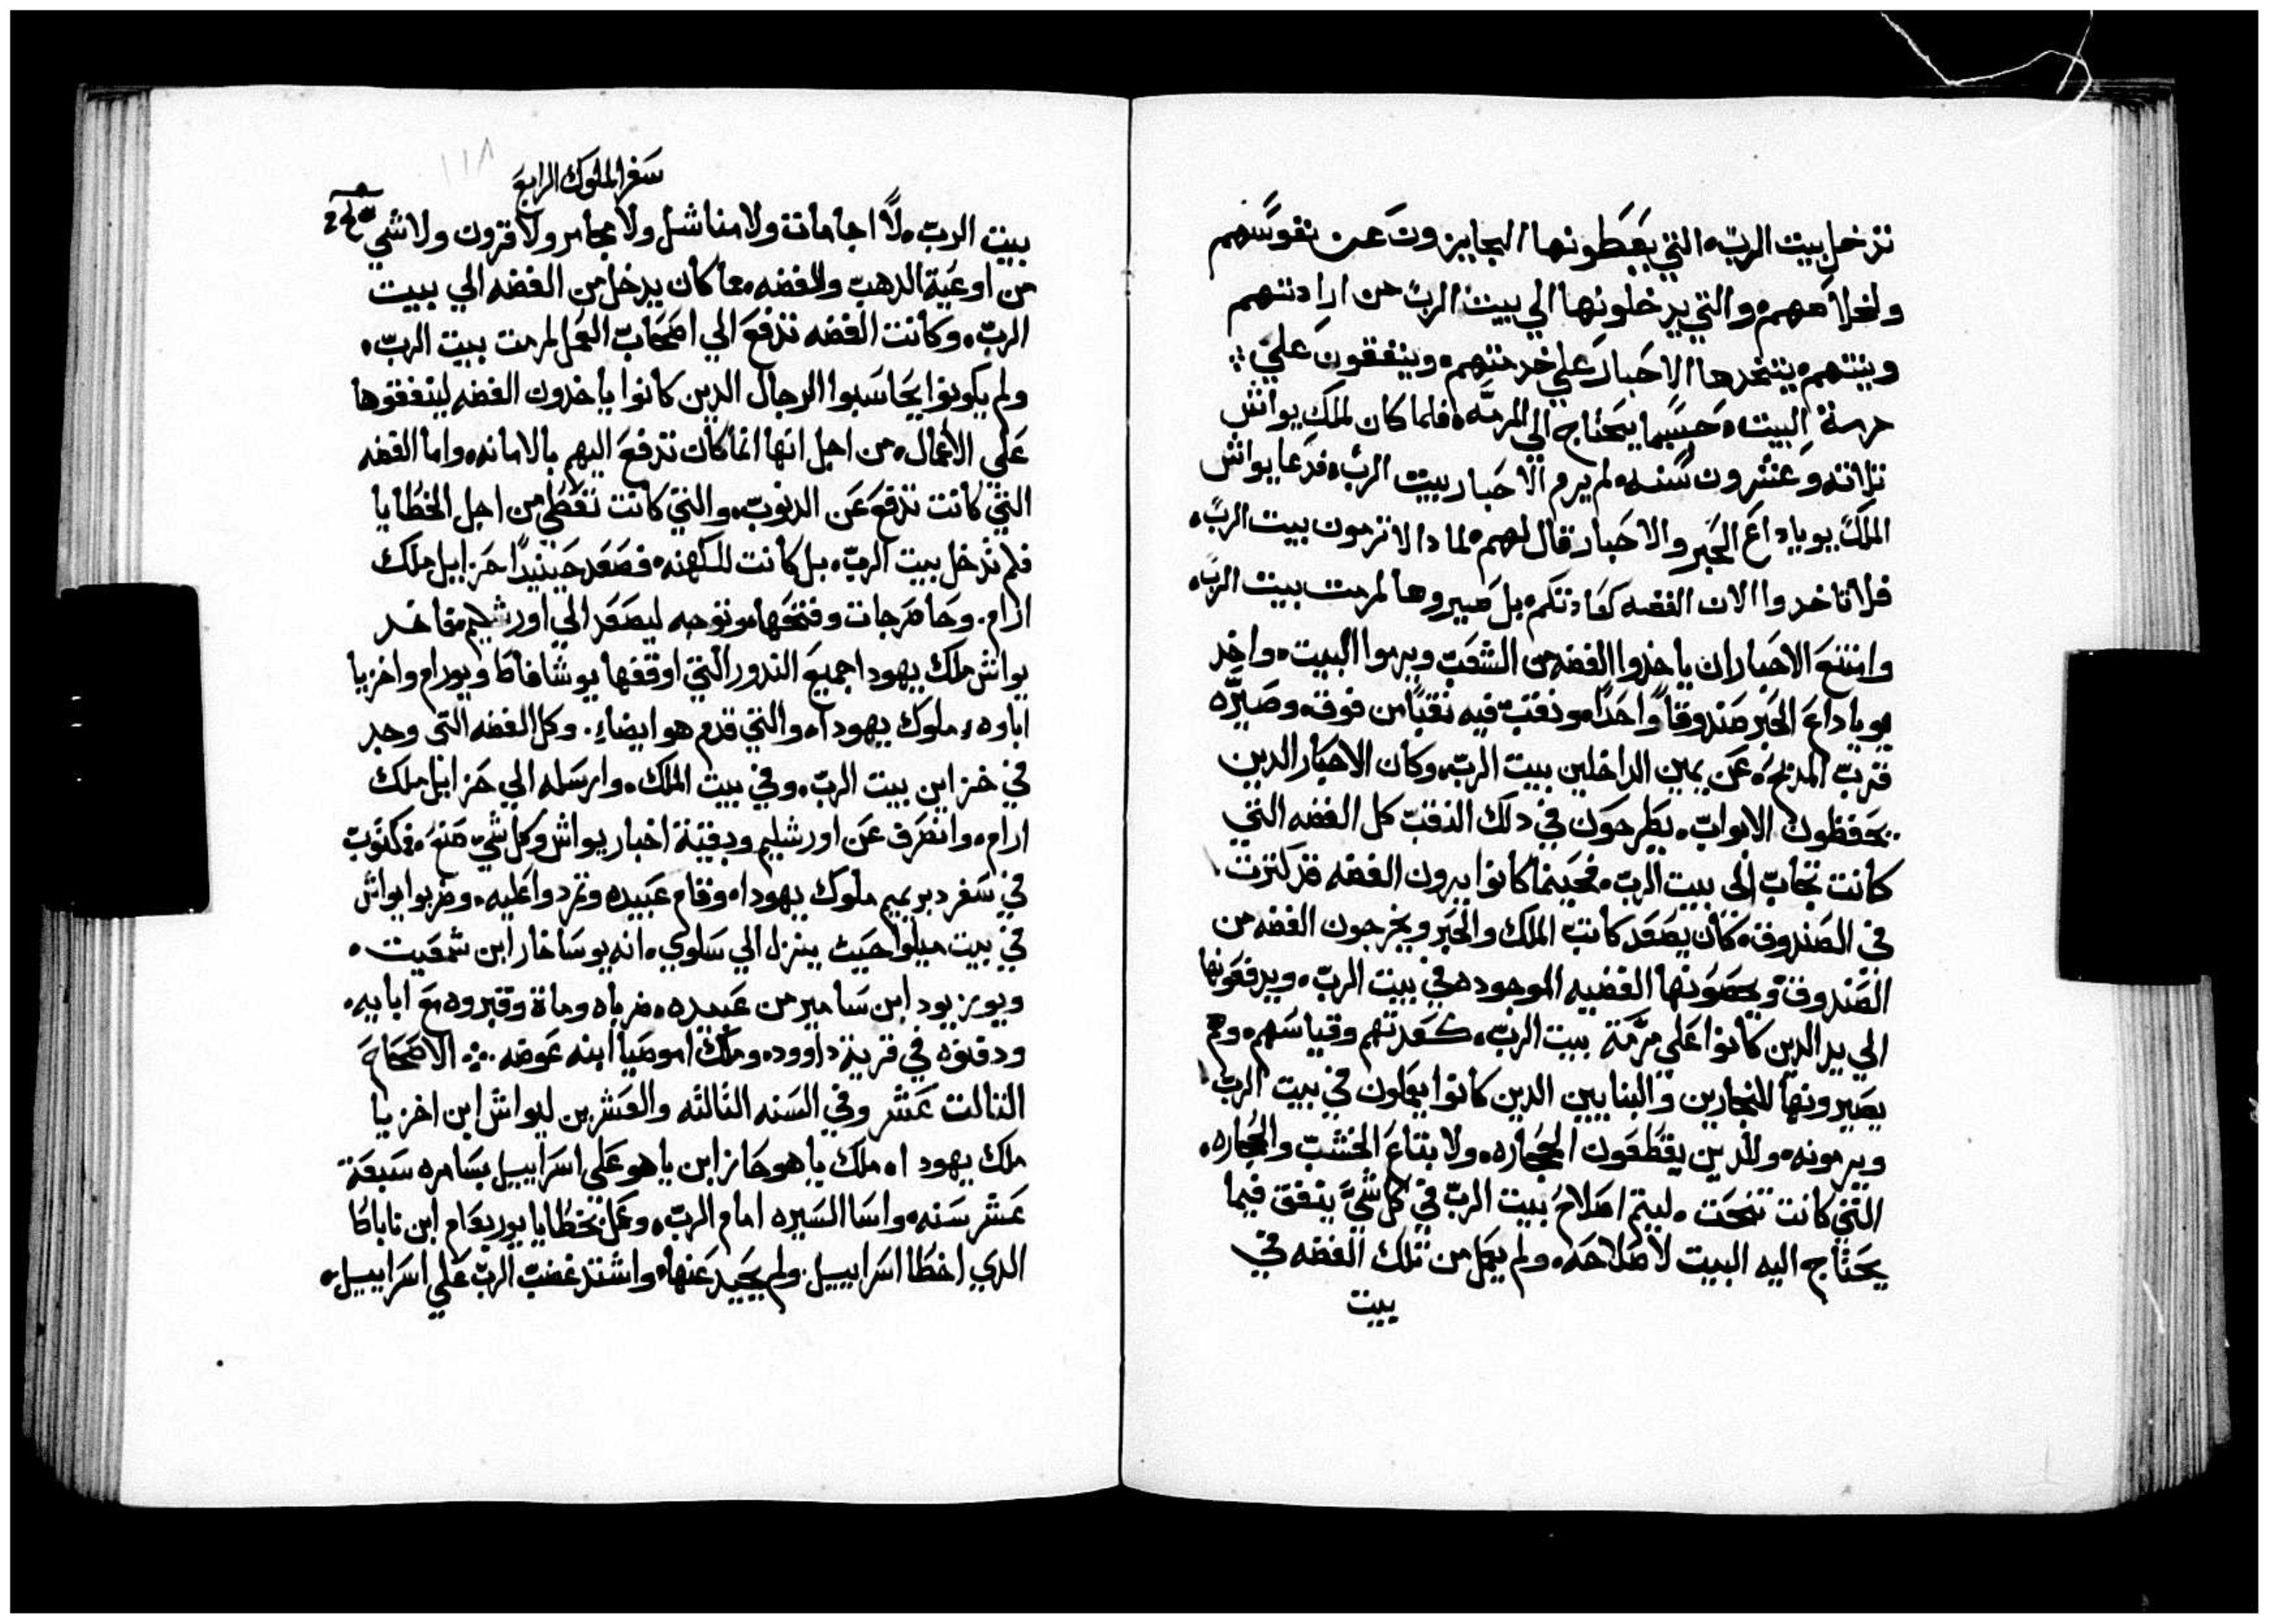 تدخل بيت الربّ، التي يعطونها المجايزون عن نفوسهم
ولخلاصهم، والتي يدخلونها الي بيت الربّ من ارادتهم
ونيتهم، يتخدها الاحبار علي خدمتهم، وينفقون علي
مرمة البيت، حسبما يحتاج الي المرمّه، فلما كان لملك يواش
تلاته وعشرون سنه، لم يرم الاحبار بيت الربّ، فدعا يواش
الملك يوياداع الحبر والاحبار قال لهم، لما دا لا ترمون بيت الربّ،
فلا تاخدوا الان الفضه كعادتكم، بل صيروها لمرمت بيت الربّ،
وامتنع الاحبار ان ياخدوا الفضه من الشعب ويرموا البيت، واخد
يوياداع الحبر صندوقاً واحداً، ونقب فيه نقباً من فوق، وصيرّه
قرب المدبح، عن يمين الداخلين بيت الربّ، وكان الاحبار الدين
يحفظون الابواب، يطرحون في دلك النقب كل الفضه التي
كانت تجاب الى بيت الربّ، فحينما كانوا يرون الفضه قد كترت
في الصندوق، كان يصعد كاتب الملك والحبر ويخرجون الفضه من
الصندوق ويحصونها الفضه الموجوده في بيت الربّ، ويدفعونها
الي يد الدين كانوا علي مرّمة بيت الربّ، كعدتهم وقياسهم، وهم
يصيرونها للنجارين والبنايين الدين كانوا يعملون في بيت الربّ
ويرمونه، والدين يقطعون الحجاره، ولابتاع الخشب والحجاره،
التي كانت تنحت، ليتم اصلاح بيت الربّ في كل شيَّ ينفق فيما
يحتاج اليه البيت لاصلاحه، ولم يعمل من تلك الفضه في
بيت
سفر الملوك الرابع
بيت الربّ، لا اجامات ولا مناشل ولا مجامر ولا قرون ولا شي
من اوعية الدهب والفضه، مما كان يدخل من الفضه الي بيت
الربّ، وكانت الفضه تدفع الي اصحاب العمل لمرمت بيت الربّ،
ولم يكونوا يحاسبوا الرجال الدين كانوا ياخدون الفضه لينفقوها
علي الاعمال، من اجل انها انما كان تدفع اليهم بالامانه، واما الفضه
التي كانت تدفع عن الدنوب، والتي كانت تعطي من اجل الخطايا
فلم تدخل بيت الربّ، بل كانت للكهنه، فصعد حينيداً حزاييل ملك
ارام، وحاصر جات وفتحها، وتوجه ليصعد الي اورشليم، فاخد
يواش ملك يهودا جميع الندور التي اوقفها يوشافاط ويورام واخزيا
اباوه، ملوك يهودا، والتي قدم هو ايضاً، وكل الفضه التى وجد
في خزاين بيت الربّ، وفي بيت الملك، وارسله الي حزاييل ملك
ارام، وانصرف عن اورشليم وبقية اخبار يواش وكل شي صنع، مكتوب
في سفر دبريميم ملوك يهودا، وقام عبيده وتمردوا عليه، وضربوا يواش
في بيت ميلوا حيت ينزل الي سلوي، انه يوساخار ابن شمعيت،
ويوزبود ابن سامير من عبيده، ضرباه ومات وقبروه مع ابايه،
ودفنوه في قرية داوود، وملك اموصيا ابنه عوضه ܀ الاصحاح
التالت عشر وفي السنه التالته والعشرين ليواش ابن اخزيا
ملك يهودا، ملك ياهوحاز ابن ياهو على اسراييل بسامره سبعة
عشر سنه، واسا السيره امام الربّ، وعمل بخطايا يوربعام ابن ناباط
الدي اخطا اسراييل ولم يحيد عنها، واشتد غضب الربّ علي اسراييل،